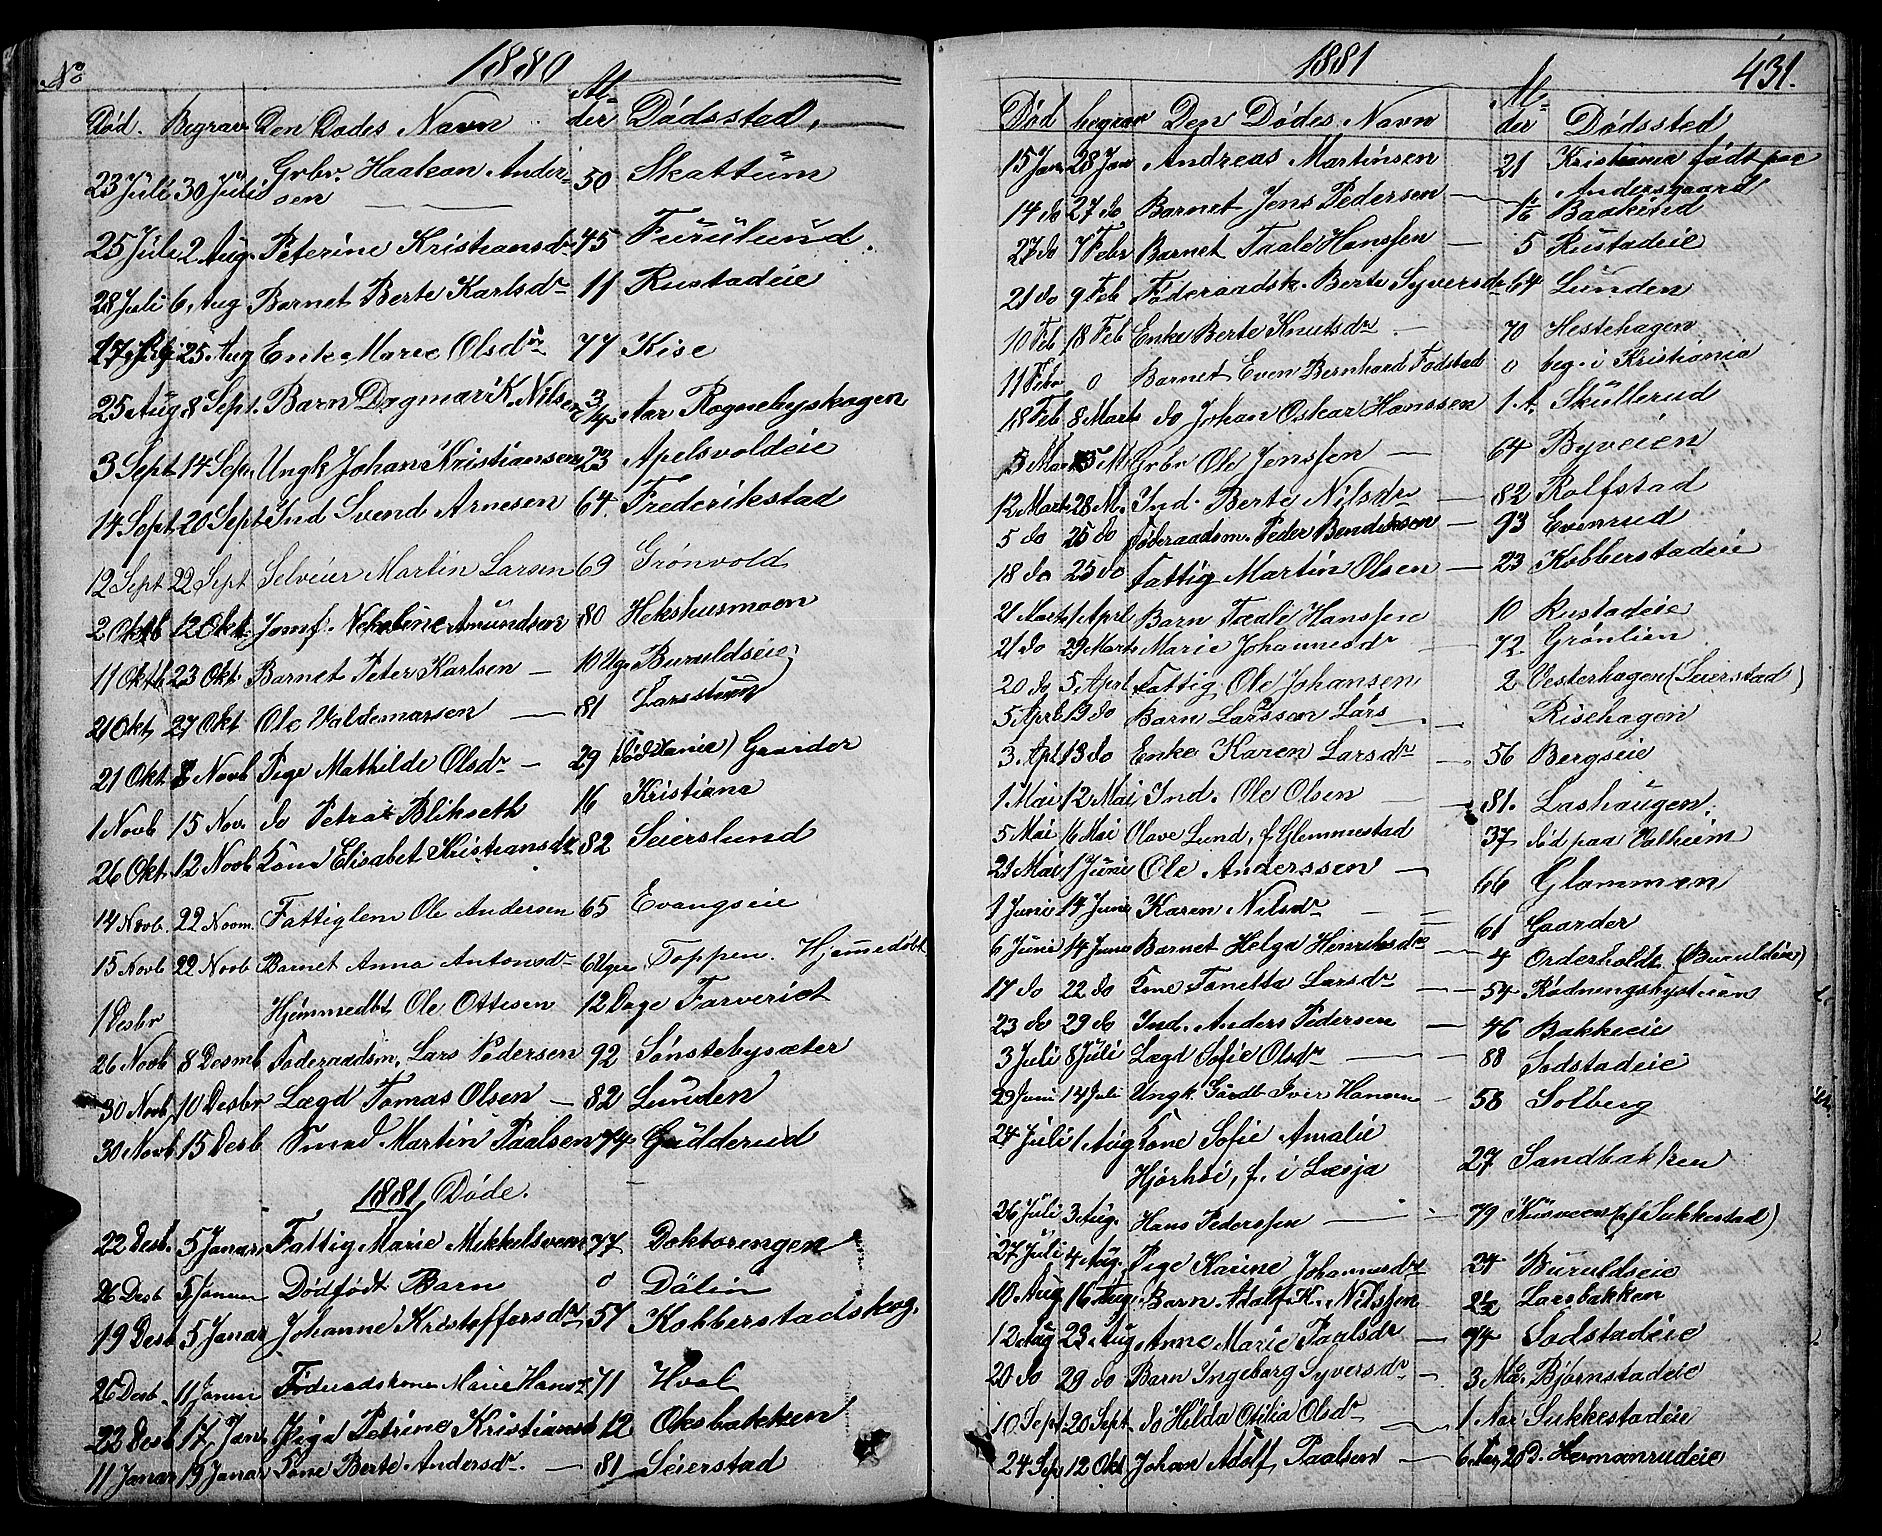 No
1880
Død. Begrav Den Dødes Navn Al-der Dødssted,
23 Juli 30 Juli Grbr. Haakon Ander-sen 50 Skattum
25 Juli 2 Aug. Peterine Kristiansdr 45 Furulund.
28 Juli 6, Aug Barnet Berte Karlsdr 11 Rustadeie
25 Aug Enke Marie Olsdr 77 Kise
25 Aug 8 Sept. Barn Dagmar K. Nilsen 3/4 Aar Rognebyskogen
3 Sept 14 Sep, Ungk Johan Kristiansen 23 Apelsvoldeie
14 Sept 20 Sept Ind Svend Arnesen 64 Frederikstad
12 Sept 22 Sept Selveier Martin Larsen 69 Grønvold
2 Oktb 12 Okt. Jomf. Nekoline Amundsen 80 Hekshusmoen
11 Oktb 23 Okt Barnet Peter Karlsen — 10 Uger Buruldseie,
21 Okt, 27 Okt Ole Valdemarsen — 81 Larsstuen
21 Okt 8 Novb Pige Mathilde Olsdr — 29 Gaarder
1 Novb 15 Nov. do Petra Blikseth 16 Kristiana
26 Okt. 12 Novb Kone Elisabet Kristiansdr 82 Seierslund
14 Novb. 22 Novm. Fattiglem Ole Andersen 65 Evangseie
15 Novb 22 Novb Barnet Anna Antonsdr 6 Uger Toppen. Hjemmedøbt
1 Desbr Hjemmedbt. Ole Ottesen 12 Dage Farveriet
26 Novb 8 Desmb Føderaadsm. Lars Pedersen 92 Sønstebysæter
30 Novb 10 Desbr Lægd Tomas Olsen — 82 Lunden
30 Novb 15 Desb Smed Martin Paalsen 74 Gudderud
1881, Døde.
22 Desb. 5 Januar Fattig Marie Mikkelsvens 77 Doktorengen
26 Desb 5 Januar Dødfødt Barn 0 Dælin
19 Desb 5 Januar Johanne Kristoffersdr 57 Kobberstadskog.
26 Desb. 11 Januar Føderaadskone Marie Hansdr 71 Hval
22 Desb 17 Jan, Pige Petrine Kristiansd 12 Oksbakken
11 Januar 19 Januar Kone Berte Andersdr. — 81 Seierstad
1881 431.
Død begrav Den Dødes Navn Al-der Dødssted
15 Jan 28 Jan Andreas Martinsen 21 Kristiania født paa Andersgaard
14 do 27 do Barnet Jens Pedersen — 1/6 Baakind
27 do 7 Febr Barnet Taale Hanssen — 5 Rustadeie
21 do 9 Feb Føderaadsk. Berte Syversdr 64 Lunden
10 Feb 18 Feb Enke Berte Knutsdr — 70 Hestehagen
11 Febr 0 Barnet Even Bernhard Fodstad 0 beg. i Kristiania
18 Feb 8 Marts do Johan Oskar Hanssen 1 A. Skullerud
5 Mar 15 M. Grbr Ole Jenssen — 64 Byveien
12 Marts 28 M. Ind. Berte Nilsdr — 82 Rolfstad
5 do 25 do Føderaadsm. Peder Bendiksen — 93 Evenrud
18 do 25 do Fattig Martin Olsen — 23 Kobberstadeie
21 Marts 1 Aprl Barn Taale Hanssen 10 Rustadeie
21 do 29 Marts Marie Johannesd — 72 Grønlien
20 do 5 Aprl Fattig Ole Johansen 2 Vesterhagen (Seierstad)
5 Aprl 13 do Barn Larssen Lars — Risehagen
3 Apl. 13 do Enke Karen Larsdr — 56 Bergseie
1 Mai 12 Mai Ind. Ole Olsen — 81. Lashaugen.
5 Mai 16 Mai Olave Lund, f. Glemmestad 37 død paa Valheim
21 Mai 1 Juni Ole Anderssen — 66 Glommen
1 Juni 14 Juni Karen Nilsdr — 61 Gaarder
6 Juni 14 Juni Barnet Helga Henriksdr — 4 Orderholdt (Buruldeie)
17 do 22 do Kone Tonetta Larsdr — 54 Rødnengskysteien
23 do 29 do Ind. Anders Pedersen — 46 Bakkeeie
3 Juli 8 Juli Lægd Sofie Olsdr — 88 Sodstadeie
29 Juni 14 Juli Ungk. Gaardb. Iver Hansen — 58 Solberg
24 Juli 1 Aug Kone Sofie Amalie Hjørhøi, f. i Læsja 27 Sandbakken
26 Juli 3 Aug. Hans Pederssen — 79 Kusveen (af Sukkestad)
27 Juli 4 Aug. Pige Karine Johannesdr 24 Buruldseie
10 Aug 16 Aug. Barn Adolf K. Nilssen 2 1/2 Laesbakken
12 Aug 23 Aug Anne Marie Paalsdr — 74 Sodstadeie
20 do 29 do Barn Ingeborg Syversdr — 3 Ma. Bjørnstadeie
10 Sept. 20 Sept. do Hilda Otilia Olsdr — 1 Aar Sukkestadeie
24 Sep, 12 Okt Johan Adolf Paalsen — 6 Aar, 20 D. Hermanrudeie